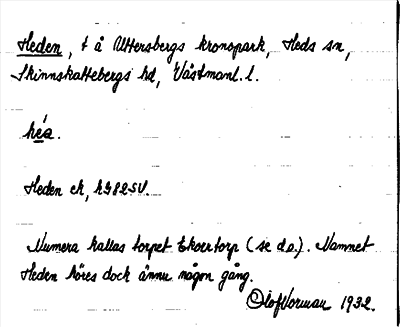 Heden, t å Uttersbergs kronopark, Heds sn,
Skinnskattebergs hd, Västmanl. l.
héa.
Heden ek, h382SV.
Numera kallas torpet Ekorrtorp (se d.o.). Namnet
Heden höres dock ännu någon gång.
Olof Vorman 1932.